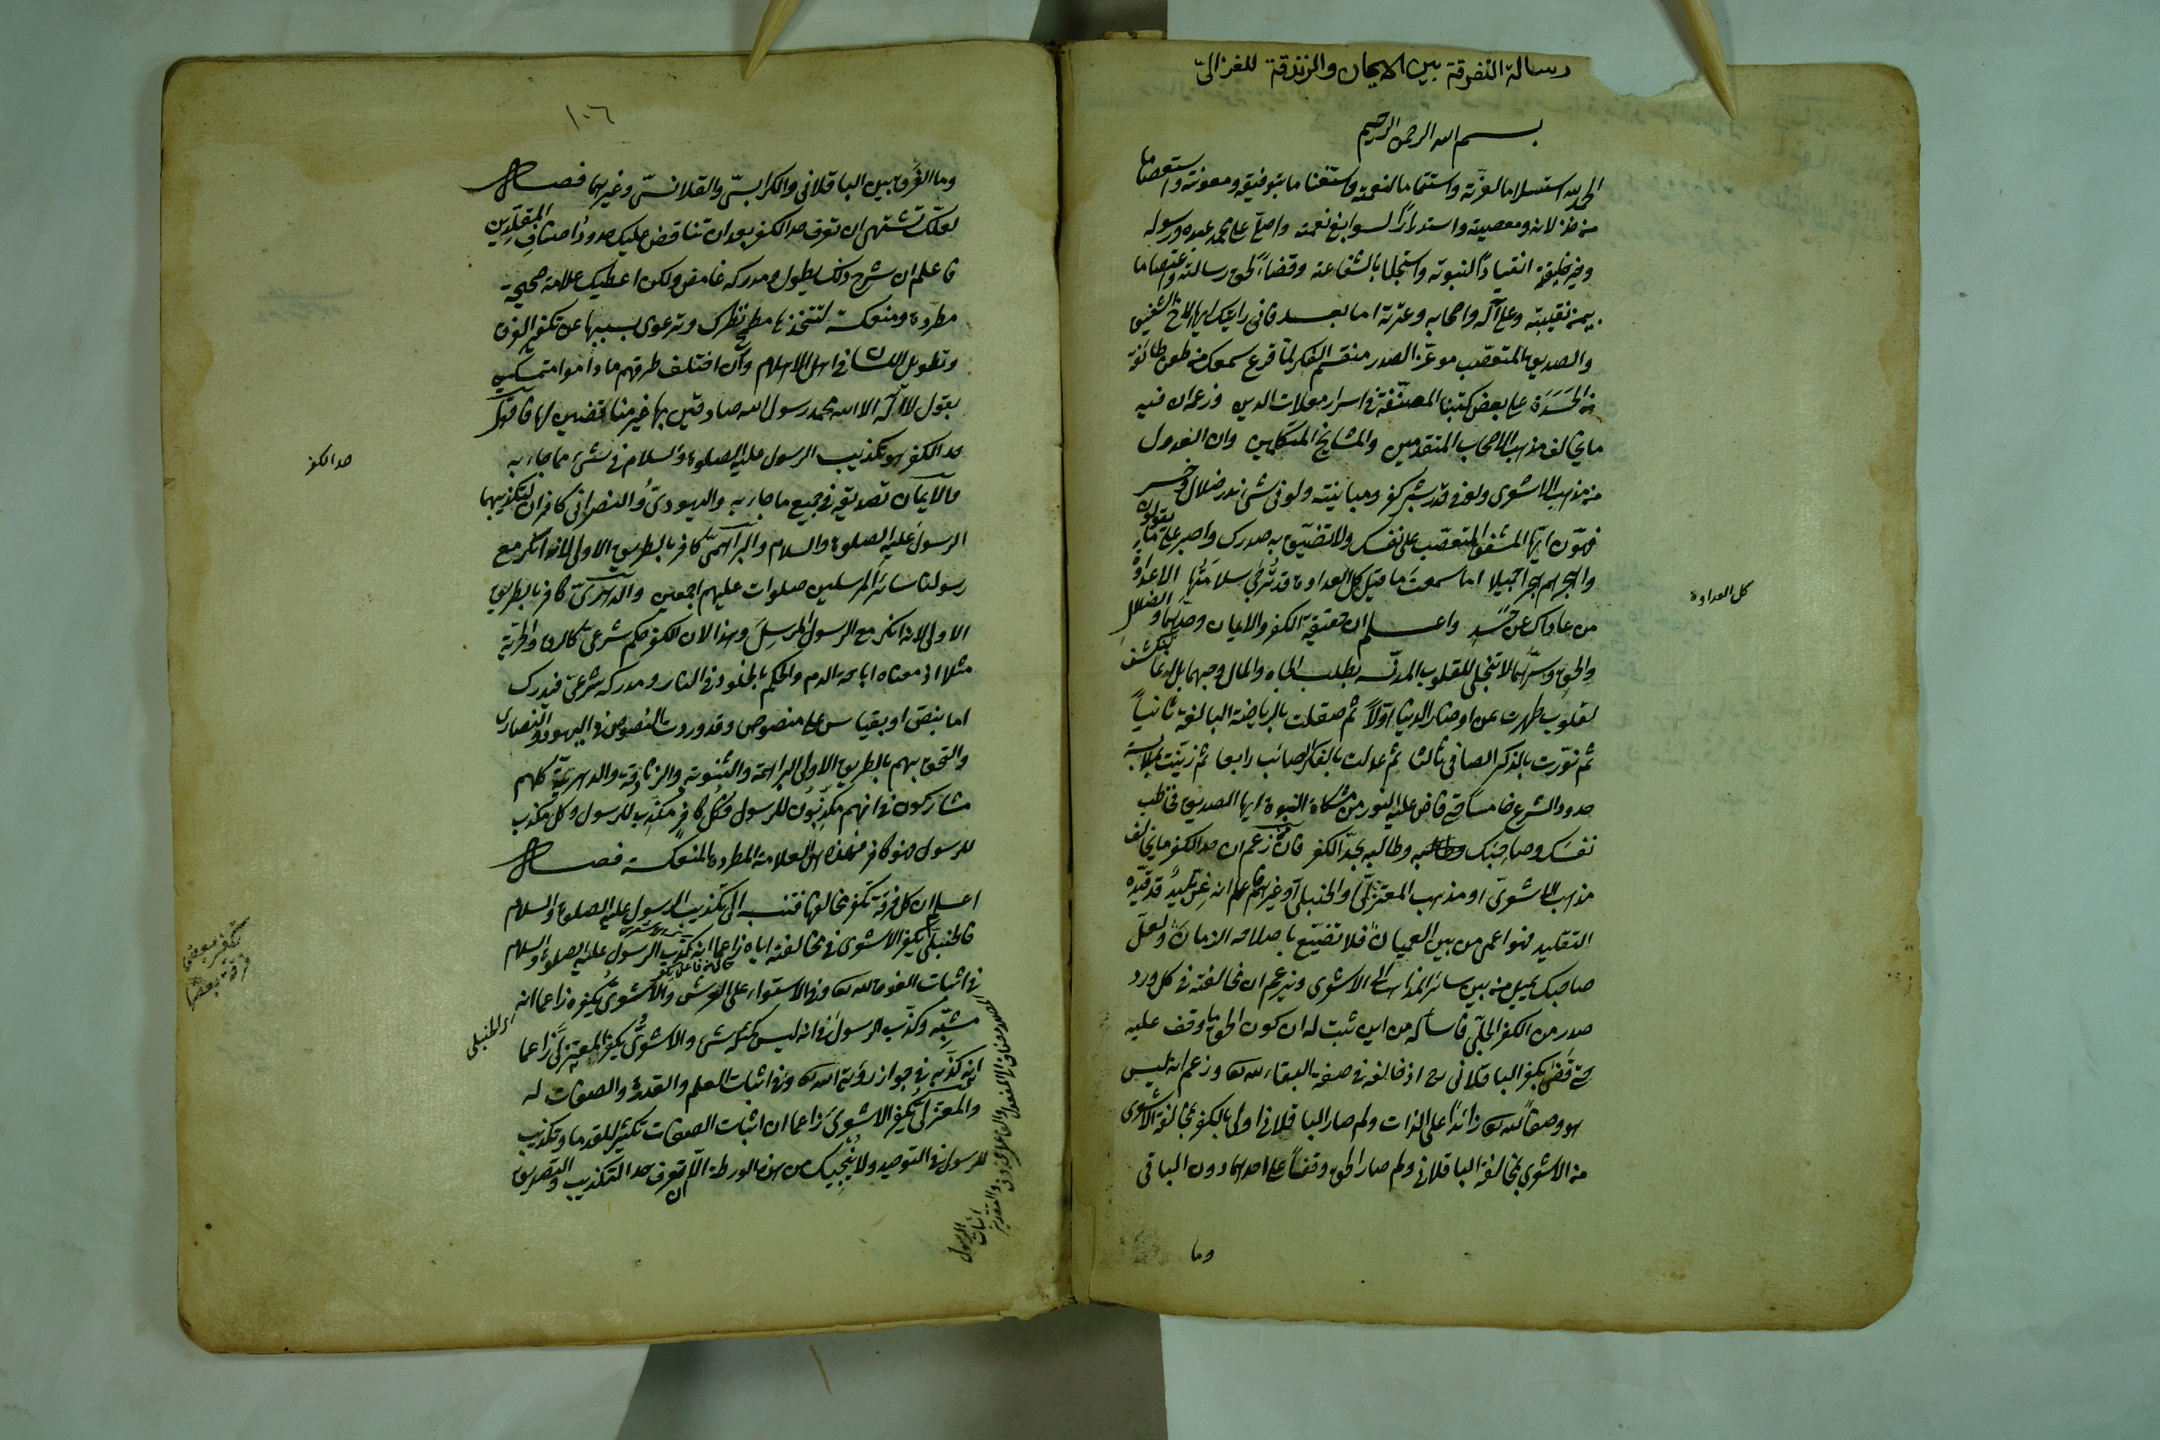 رسالة التفرقة بين الايمان والزندقة للغزاليّ
بسم الله الرحمن الرحيم
الحمد لله استسلاما لعزّته واستتماما لنعمته واستغناما بتوفيقه ومعونته واستعصاما
من خذلانه ومعصيته واستدرارًا لسوابغ نعمته واصلّي على محمد عبده ورسوله
وخير خليقته انقيادًا لنبوته واستجلابا لشفاعته وقضاءً لحق رسالته واعتصاما
بيمن نقيبته وعلى آله واصحابه وعترته اما بعد فاني رايتك ايها الاخ الشفيق
والصديق المتعصّب موغر الصدر منقسم الفكر لمّا قرع سمعك من طعن طائفة
من الحَسَدَة على بعض كتبنا المصنّفة في اسرار معاملات الدين وزعم ان فيه
ما يخالف مذهب الاصحاب المتقدمين والمشايخ المتكلمين وان العدول
من مذهب الاشعري ولو في قدر شبر كفر ومباينته ولو في شئ نزر ضلال وخسر
فهوّن ايّها المشفق المتعصّب على نفسك ولا تضيّق به صدرك واصبر على ما يقولون
واهجرهم هجرا جميلا اما سمعت ما قيل كل العداوة قد تُرجى سلامتُها الا عداوة
كل العداوة
من عاداك عن حسد واعلم ان حقيقة الكفر والايمان وحدّهما والضلال
والحق وسرّهما لا تنجلي للقلوب المدنّسة بطلب الجاه والمال وحبهما بل انما ينكشف
لقلوب طهرت عن اوضار الدنيا اوّلاً ثم صقلت بالرياضة البالغة ثانياً
ثم نوّرت بالذكر الصافي ثالثا ثم عدلت بالفكر الصائب رابعا ثم زيّنت بملابسة
حدود الشرع خامسا حتى فاض عليه النور من مشكاة النبوة ايها الصديق فخاطب
نفسك وصاحبك وطالبه بحدّ الكفر فان زعم ان حد الكفر ما يخالف
مذهب الاشعريّ او مذهب المعتزليّ او الحنبليّ او غيرهم فاعلم انه غرّ بليدٌ قد قيّده
التقليد فهو اعمى من بين العميان فلا تضيّع باصلاحه الزمان ولعلّ
صاحبك يميل من بين سائر المذاهب الى الاشعري ويزعم ان مخالفته في كل ورد
صدر من الكفر الجليّ فاسأله من اين ثبت له ان كون الحق ما وقف عليه
حتى قضى بكفر الباقلاني اذ خالفه في صفة البقاء لله تعالى وزعم انه ليس
هو وصفا لله تعالى زائدًا على الذات ولم صار الباقلاني اولى بالكفر بمخالفة الاشعري
من الاشعري بمخالفة الباقلاني ولم صار الحق وقفاً على احدهما دون الباقي
وما
١٠٦
وما الفرق بين الباقلاني والكرابيسيّ والقلانسيّ وغيرهما فصل
لعلّك تشتهي ان تعرف حد الكفر بعد ان تناقض عليك حدود اصناف المقلدين
فاعلم ان شرح ذلك يطول ومدركه غامض ولكن اعطيك علامة صحيحة
مطّردة ومنعكسة لتتخذها مطمح نظرك وترعوي بسببها عن تكفير الفرق
وتطويل اللسان في اهل الاسلام وان اختلف طرقهم ما داموا متمسكين
بقول لا اله الا الله محمد رسول الله صادقين بها غير مناقضين لها فاقول
حد الكفر هو تكذيب الرسول عليه الصلوة والسلام في شئ مما جاء به
حد الكفر
والايمان تصديقه في جميع ما جاء به واليهوديّ والنصراني كافران لتكذيبهما
الرسول عليه الصلوة والسلام والبراهميّ كافر بالطريق الاولى لانه انكر مع
رسولنا سائر المرسلين صلوات عليهم اجمعين والدهريّ كافر بالطريق
الاولى لانه انكر مع الرسول المرسِل وهذا لان الكفر حكم شرعي كالرق والحرية
مثلا اذ معناه اباحة الدم والحكم بالخلود في النار ومدركه شرعيّ فيدرك
اما بنصّ او بقياس على منصوص وقد وردت النصوص في اليهود والنصارى
والتحق بهم بالطريق الاولى البراهمة والثنوية والزنادقة والدهرية كلهم
مشاركون في انهم مكذّبون للرسول فكل كافر مكذّب للرسول وكل مكذب
للرسول فهو كافر فهذه هي العلامة المطردة المنعكسة فصل
اعلم ان كل فرقة تكفّر مخالفها فتنسبه الى تكذيب الرسول عليه الصلوة والسلام
فالحنبليّ يكفّر الاشعري في مخالفته اياه زاعما انه كذّب الرسول عليه الصلوة والسلام
تكفير بعض فرقة بعضا
في اثبات الفوق لله تعالى وفي الاستواء على العرش والاشعريُّ يكفّره زاعما انه
اي الحنبلي
مشبّه وكذّب الرسول في انه ليس كمثله شئ والاشعريُّ يكفر المعتزليَّ زاعما
انه كذّبه في جواز رؤية الله تعالى وفي اثبات العلم والقدرة والصفات له
والمعتزليُّ يكفر الاشعريَ زاعما ان اثبات الصفات تكثير للقدما وتكذيب
للرسول في التوحيد ولا يُنجيك من هذه الورطة الّا ان تعرف حد التكذيب والتصديق